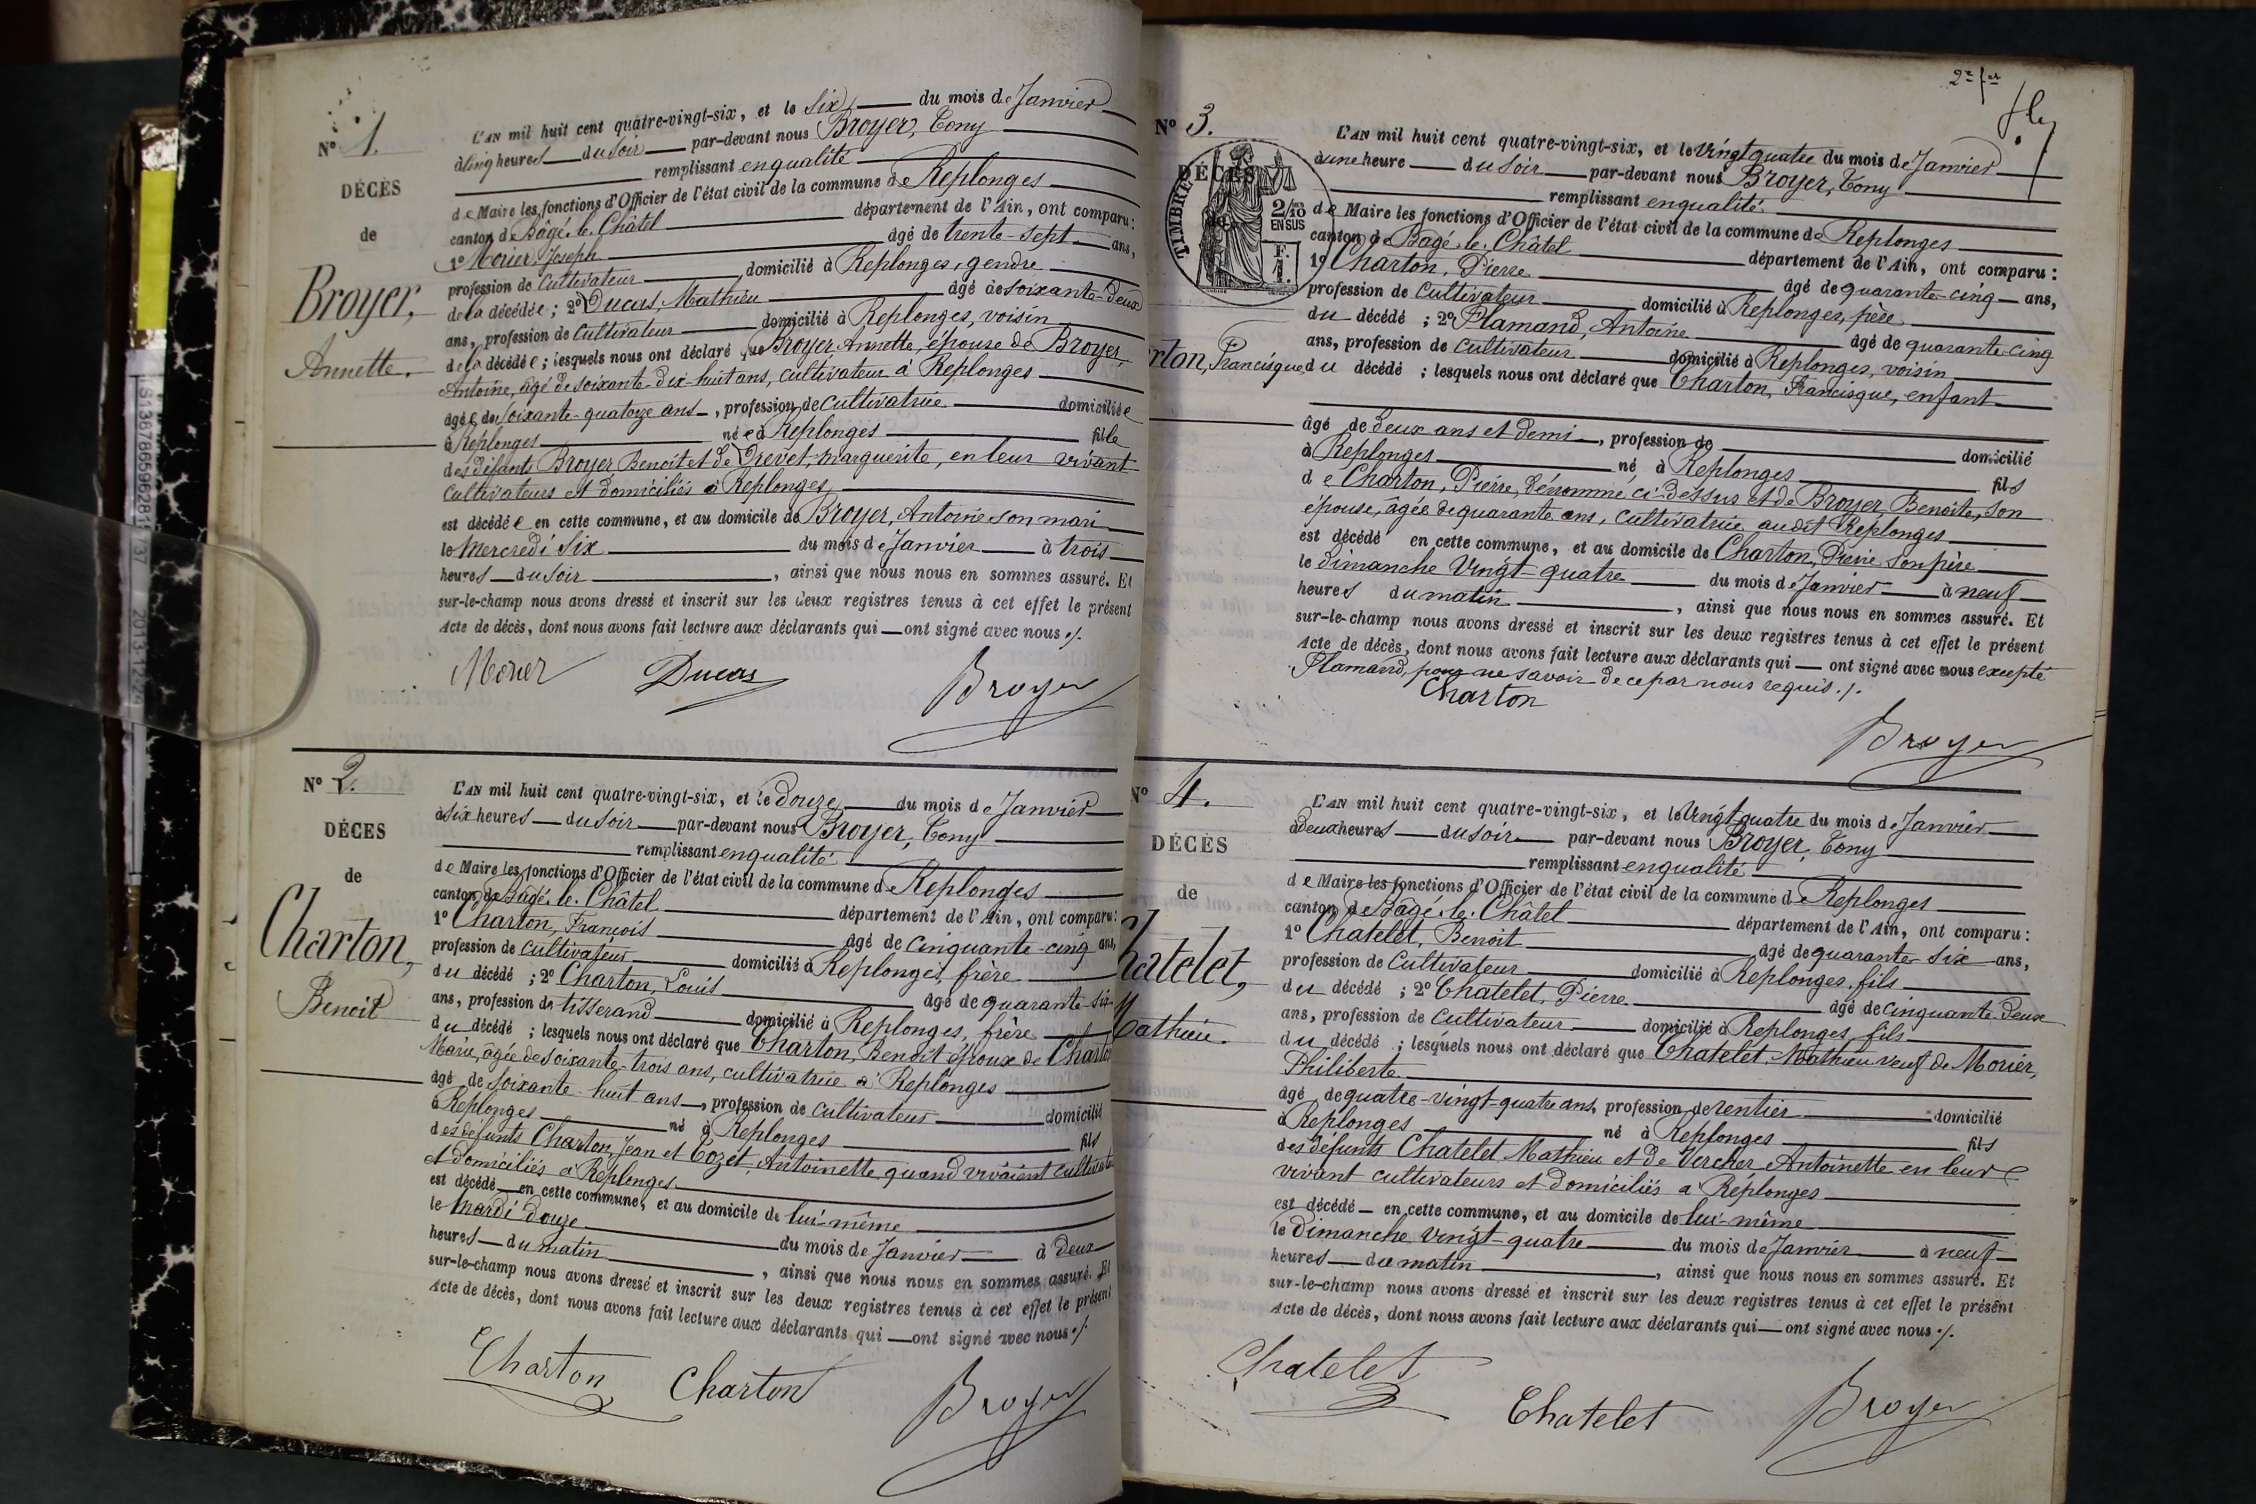 N° 1.
DÉCÈS
de
Broyer,
Annette.
L'AN mil huit cent quatre-vingt-six, et le six du mois de Janvier
à cinq heures du soir par-devant nous Broyer, Tony
remplissant en qualité
de Maire les fonctions d'Officier de l'état civil de la commune de Replonges
canton de Bâgé-le-Châtel département de l'Ain, ont comparu :
1° Morier, Joseph âgé de trente-sept ans,
profession de Cultivateur domicilié à Replonges, gendre
de la décédée ; 2° Ducas, Mathieu âgé de soixante-deux
ans, profession de Cultivateur domicilié à Replonges, voisin
de la décédée ; lesquels nous ont déclaré que Broyer Annette, épouse de Broyer,
Antoine, âgé de soixante-dix-huit ans, cultivateur à Replonges
âgée de soixante-quatorze ans, profession de cultivatrice domiciliée
à Replonges née à Replonges fille
des défunts Broyer Benoit et de Drevet, Marguerite, en leur vivant
Cultivateurs et domiciliés à Replonges
est décédée en cette commune, et au domicile de Broyer, Antoine son mari
le Mercredi six du mois de Janvier à trois
heures du soir, ainsi que nous nous en sommes assuré. Et
sur-le-champ nous avons dressé et inscrit sur les deux registres tenus à cet effet le présent
Acte de décès, dont nous avons fait lecture aux déclarants qui ont signé avec nous ./.
Morier Ducas Broyer
N° 2.
DÉCÈS
de
Charton,
Benoit
L'AN mil huit cent quatre-vingt-six, et le douze du mois de Janvier
à six heures du soir par-devant nous Broyer, Tony
remplissant en qualité
de Maire les fonctions d'Officier de l'état civil de la commune de Replonges
canton de Bâgé-le-Châtel département de l'Ain, ont comparu :
1° Charton, François âgé de cinquante-cinq ans,
profession de cultivateur domicilié à Replonges, frère
du décédé ; 2° Charton, Louis âgé de quarante-six
ans, profession de tisserand domicilié à Replonges, frère
du décédé ; lesquels nous ont déclaré que Charton, Benoit époux de Charton
Marie, âgée de soixante-trois ans, cultivatrice à Replonges
âgé de soixante-huit ans, profession de cultivateur domicilié
à Replonges né à Replonges fils
des défunts Charton, Jean et Cozet, Antoinette, quand vivaient cultivate
et domiciliés à Replonges
est décédé en cette commune, et au domicile de lui-même
le Mardi douze du mois de Janvier à deux
heures du matin, ainsi que nous nous en sommes assuré. Et
sur-le-champ nous avons dressé et inscrit sur les deux registres tenus à cet effet le présent
Acte de décès, dont nous avons fait lecture aux déclarants qui ont signé avec nous ./.
Charton Charton Broyer
2e fet
N° 3.
DÉCÈS
TIMBRE
2/10
EN SUS
F.
1.
rton, Francisque
L'AN mil huit cent quatre-vingt-six, et le vingt quatre du mois de Janvier
à une heure du soir par-devant nous Broyer, Tony
remplissant en qualité
de Maire les fonctions d'Officier de l'état civil de la commune de Replonges
canton de Bagé-le-Châtel département de l'Ain, ont comparu :
1° Charton, Pierre âgé de quarante-cinq ans,
profession de Cultivateur domicilié à Replonges, père
du décédé ; 2° Plamand, Antoine âgé de quarante-cinq
ans, profession de cultivateur domicilié à Replonges, voisin
du décédé ; lesquels nous ont déclaré que Charton, Francisque, enfant
âgé de deux ans et demi, profession de domicilié
à Replonges né à Replonges fils
de Charton, Pierre, dénommé ci-dessus et de Broyer, Benoite, son
épouse, âgée de quarante ans, cultivatrice audit Replonges
est décédé en cette commune, et au domicile de Charton, Pierre son père
le dimanche vingt-quatre du mois de Janvier à neuf
heures du matin, ainsi que nous nous en sommes assuré. Et
sur-le-champ nous avons dressé et inscrit sur les deux registres tenus à cet effet le présent
Acte de décès, dont nous avons fait lecture aux déclarants qui ont signé avec nous excepté
Plamand, pour ne savoir de ce par nous requis ./.
Charton
Broyer
N° 4.
DÉCÈS
de
hatelet,
Mathieu.
L'AN mil huit cent quatre-vingt-six, et le vingt quatre du mois de Janvier
à deux heures du soir par-devant nous Broyer, Tony
remplissant en qualité
de Maire les fonctions d'Officier de l'état civil de la commune de Replonges
canton de Bâgé-le-Châtel département de l'Ain, ont comparu :
1° Chatelet, Benoit âgé de quarante-six ans,
profession de Cultivateur domicilié à Replonges, fils
du décédé ; 2° Chatelet, Pierre âgé de cinquante-deux
ans, profession de cultivateur domicilié à Replonges, fils
du décédé ; lesquels nous ont déclaré que Chatelet, Mathieu veuf de Morier,
Philiberte
âgé de quatre-vingt-quatre ans, profession de rentier domicilié
à Replonges né à Replonges fils
des défunts Chatelet Mathieu et de Vercher Antoinette en leur
vivant cultivateurs et domiciliés à Replonges
est décédé en cette commune, et au domicile de lui-même
le dimanche vingt-quatre du mois de Janvier à neuf
heures du matin, ainsi que nous nous en sommes assuré. Et
sur-le-champ nous avons dressé et inscrit sur les deux registres tenus à cet effet le présent
Acte de décès, dont nous avons fait lecture aux déclarants qui ont signé avec nous ./.
Chatelet Chatelet Broyer